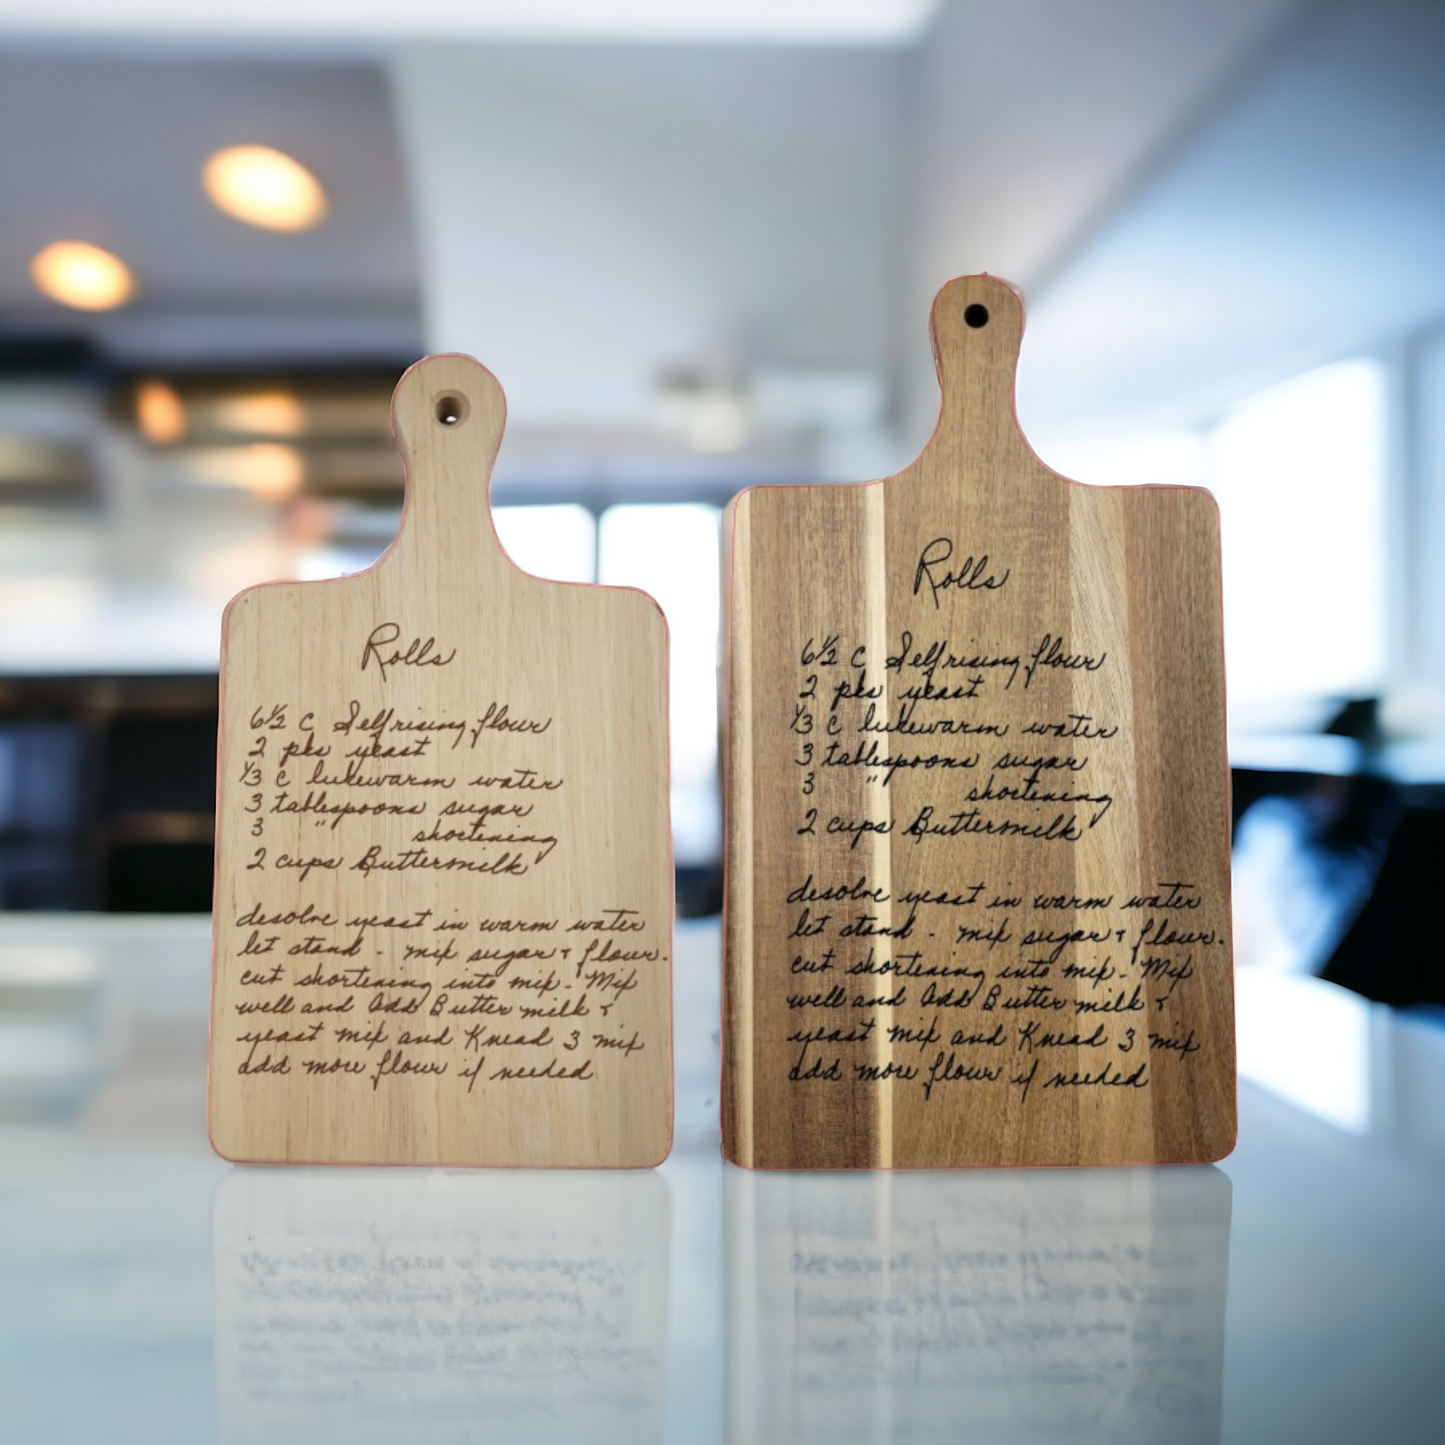 Rolls
6½ C Selfrising flour
2 pks yeast
⅓ C lukewarm water
3 tablespoons sugar
3 " shortening
2 cups Buttermilk
desolve yeast in warm water
let stand - mix sugar & flour.
cut shortening into mix - Mix
well and Add Butter milk &
yeast mix and Knead 3 mix
add more flour if needed
Rolls
6½ C Selfrising flour
2 pks yeast
⅓ C lukewarm water
3 tablespoons sugar
3 " shortening
2 cups Buttermilk
desolve yeast in warm water
let stand - mix sugar & flour.
cut shortening into mix - Mix
well and Add Butter milk &
yeast mix and Knead 3 mix
add more flour if needed